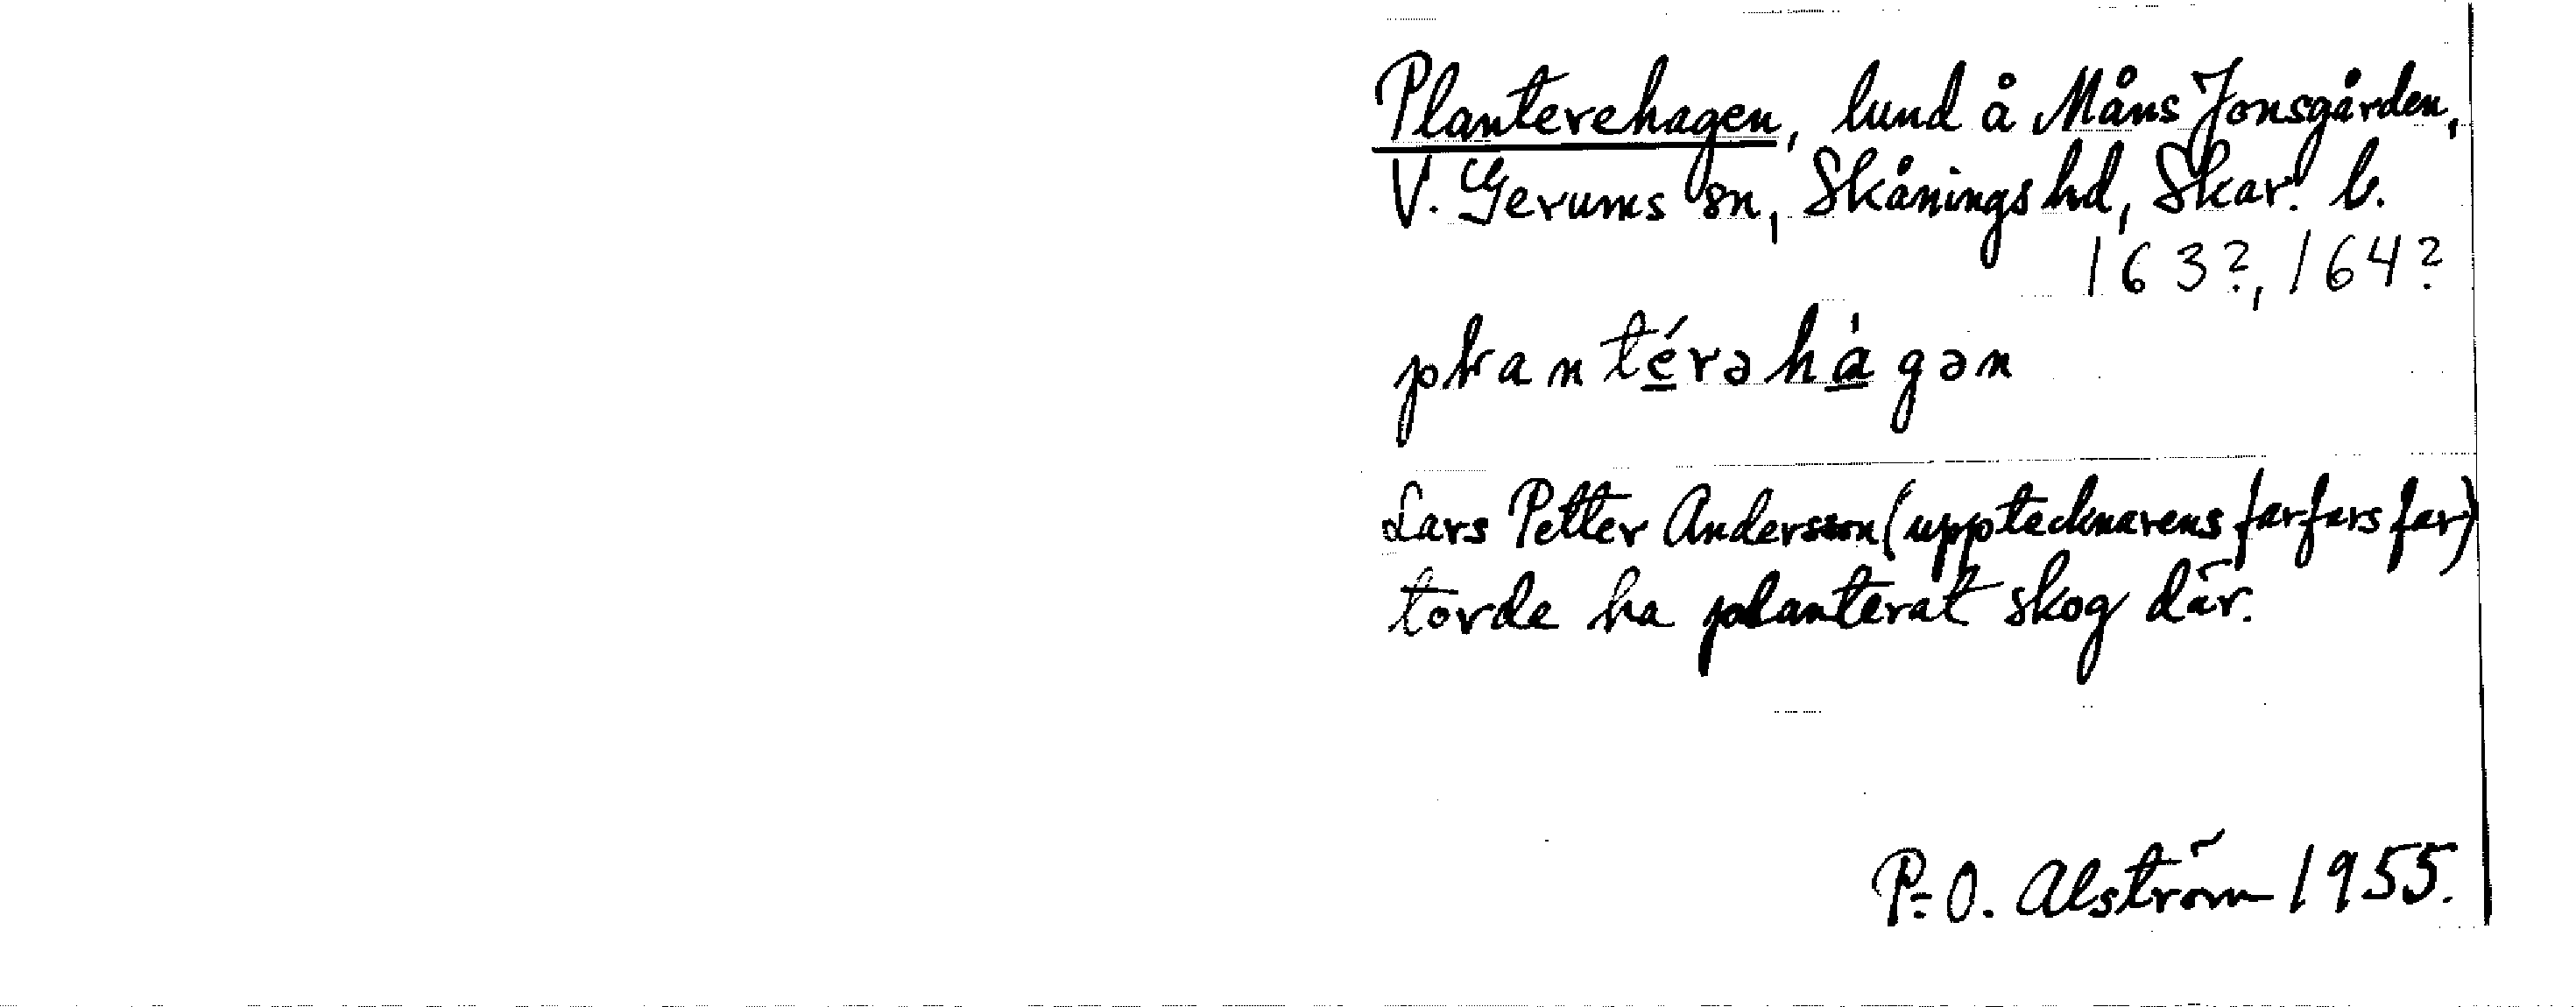 Planterehagen, lund å Måns Jonsgården,
V. Gerums sn, Skånings hd, Skar. l.
163?, 164?
pɬantérəhàgən
Lars Petter Andersson (upptecknarens farfars far)
torde ha planterat skog där.
P.-O. Alström 1955.